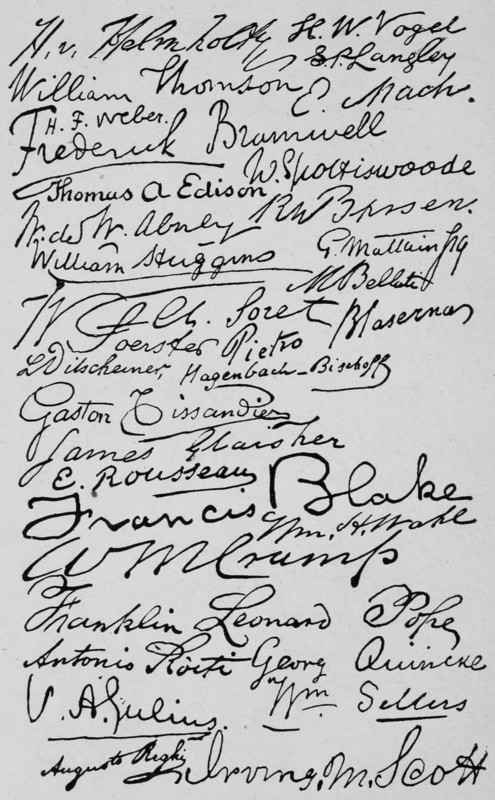 H. v. Helmholtz H. W. Vogel
S. P. Langley
William Thomson E. Mach.
H. F. Weber.
Frederick Bramwell
W. Spottiswoode
Thomas A Edison.
W. de W. Abney RW Bunsen.
William Huggins G. Mattain
M Bellati
W Foerster Ch. Soret Pietro Blaserna
L Ditscheiner, Hagenbach-Bischoff
Gaston Tissandier
James Glaisher
E. Rousseau
Francis Blake
Wm. H. Wahl
W M Crump
Franklin Leonard Pope
Antonio Ròiti Georg Quincke
V. A. Julius. Wm Sellers
Augusto Righi Irving. M. Scott